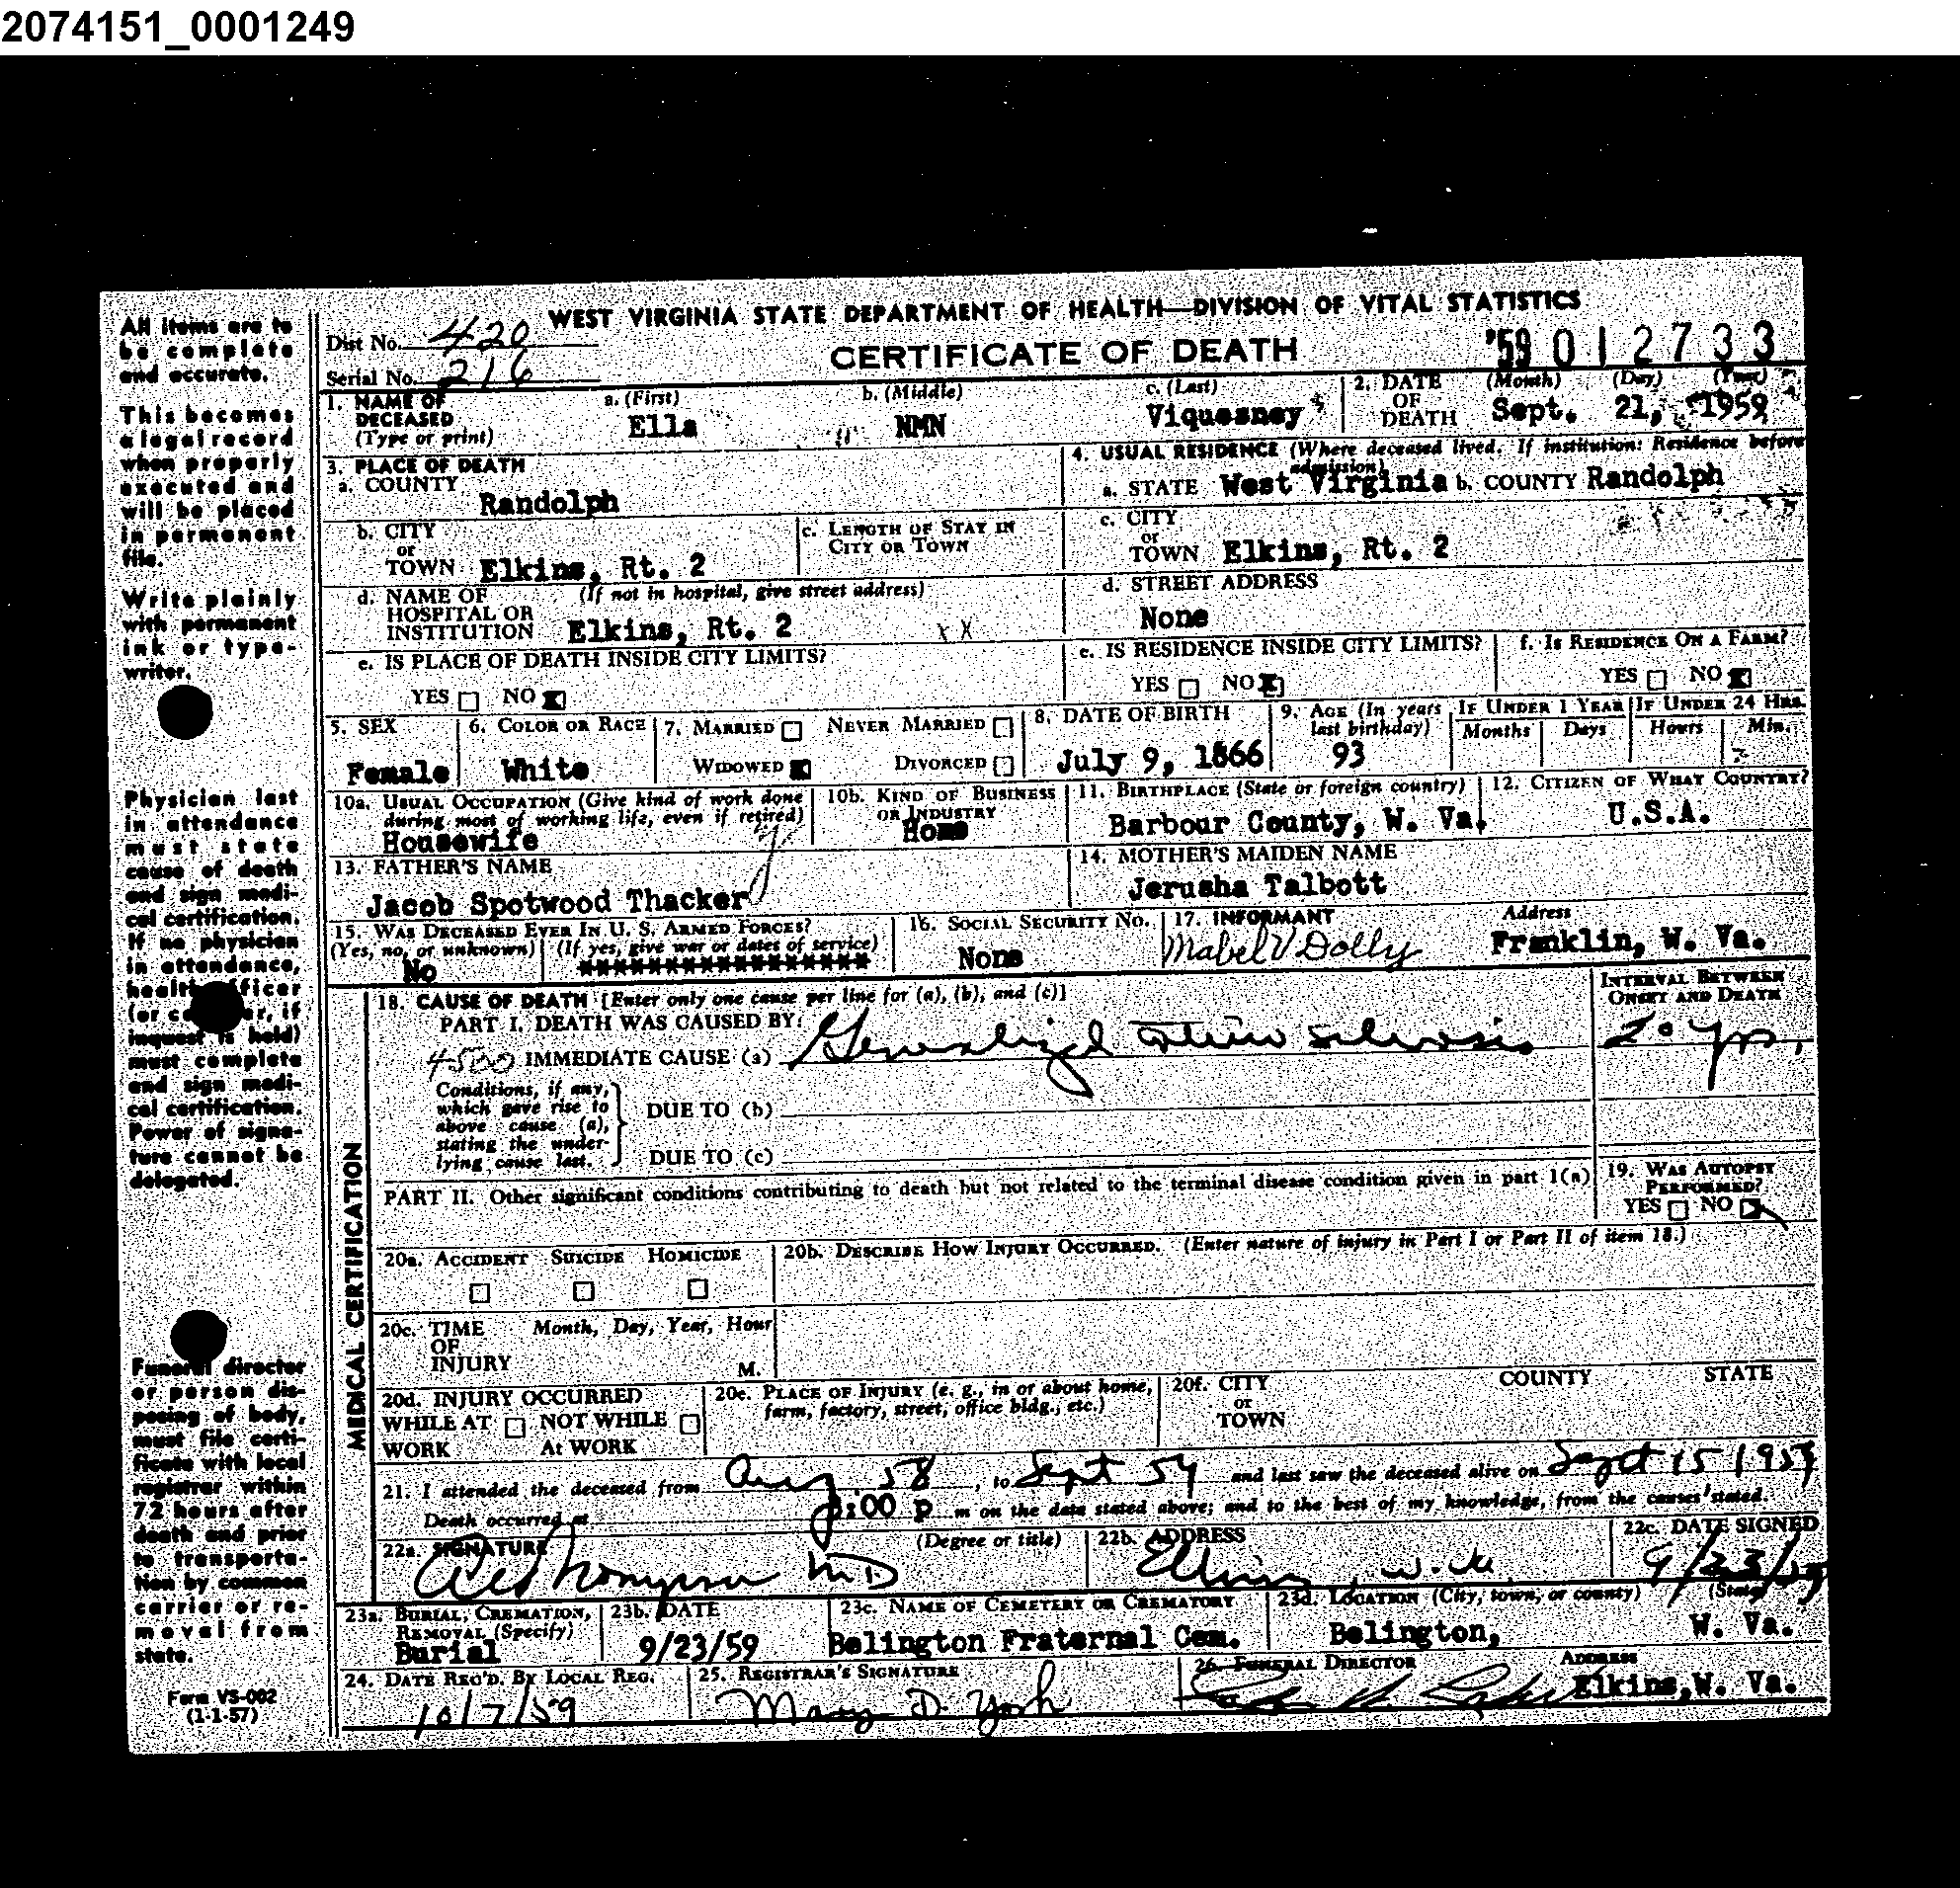 2074151_0001249
All items are to
be complete
and accurate.
This becomes
a legal record
when properly
executed and
will be placed
in permanent
file.
Write plainly
with permanent
ink or type-
writer.
Physician last
in attendance
must state
cause of death
and sign medi-
cal certification.
If no physician
in attendance,
health officer
(or
r, if
inquest is held)
must complete
and sign medi-
cal certification.
Power of signa-
ture cannot be
delegated.
Funeral director
or person dis-
posing of body,
must file certi-
ficate with local
registrar within
72 hours after
death and prior
to transporta-
tion by common
carrier or re-
moval from
state.
Form VS-002
(1-1-57)
WEST VIRGINIA STATE DEPARTMENT OF HEALTH—DIVISION OF VITAL STATISTICS
Dist No. 420
CERTIFICATE OF DEATH
'59 012733
Serial No. 216
1. NAME OF DECEASED (Type or print)
a. (First) Ella
b. (Middle) NMN
c. (Last) Viquesney
2. DATE OF DEATH (Month) (Day) (Year)
Sept. 21, 1959
3. PLACE OF DEATH
a. COUNTY Randolph
4. USUAL RESIDENCE (Where deceased lived. If institution: Residence before admission)
a. STATE West Virginia b. COUNTY Randolph
b. CITY or TOWN Elkins, Rt. 2
c. LENGTH OF STAY IN CITY OR TOWN
c. CITY or TOWN Elkins, Rt. 2
d. NAME OF HOSPITAL OR INSTITUTION (If not in hospital, give street address)
Elkins, Rt. 2 X X
d. STREET ADDRESS
None
e. IS PLACE OF DEATH INSIDE CITY LIMITS?
YES NO X
e. IS RESIDENCE INSIDE CITY LIMITS?
YES NO X
f. IS RESIDENCE ON A FARM?
YES NO X
5. SEX Female
6. COLOR OR RACE White
7. MARRIED NEVER MARRIED
WIDOWED X DIVORCED
8. DATE OF BIRTH
July 9, 1866
9. AGE (In years last birthday)
93
IF UNDER 1 YEAR Months Days
IF UNDER 24 HRS. Hours Min.
10a. USUAL OCCUPATION (Give kind of work done during most of working life, even if retired)
Housewife
10b. KIND OF BUSINESS OR INDUSTRY
Home
11. BIRTHPLACE (State or foreign country)
Barbour County, W. Va.
12. CITIZEN OF WHAT COUNTRY?
U.S.A.
13. FATHER'S NAME
Jacob Spotwood Thacker
14. MOTHER'S MAIDEN NAME
Jerusha Talbott
15. WAS DECEASED EVER IN U. S. ARMED FORCES?
(Yes, no, or unknown) (If yes, give war or dates of service)
No *****************
16. SOCIAL SECURITY NO.
None
17. INFORMANT Address
Mabel V Dolly Franklin, W. Va.
MEDICAL CERTIFICATION
18. CAUSE OF DEATH [Enter only one cause per line for (a), (b), and (c)]
INTERVAL BETWEEN ONSET AND DEATH
PART I. DEATH WAS CAUSED BY:
4500 IMMEDIATE CAUSE (a) Generalized 20 yrs.
Conditions, if any,
which gave rise to
above cause (a),
stating the under-
lying cause last.
DUE TO (b)
DUE TO (c)
PART II. Other significant conditions contributing to death but not related to the terminal disease condition given in part 1(a)
19. WAS AUTOPSY PERFORMED?
YES NO X
20a. ACCIDENT SUICIDE HOMICIDE
20b. DESCRIBE HOW INJURY OCCURRED. (Enter nature of injury in Part I or Part II of item 18.)
20c. TIME OF INJURY Month, Day, Year, Hour
M.
20d. INJURY OCCURRED
WHILE AT WORK NOT WHILE At WORK
20e. PLACE OF INJURY (e. g., in or about home, farm, factory, street, office bldg., etc.)
20f. CITY or TOWN COUNTY STATE
21. I attended the deceased from Aug 58, to Sept 59 and last saw the deceased alive on Sept 15 1959
Death occurred at :00 p m on the date stated above; and to the best of my knowledge, from the causes stated.
22a. SIGNATURE (Degree or title)
Thompson MD
22b. ADDRESS
Elkins, W. Va
22c. DATE SIGNED
9/23/59
23a. BURIAL, CREMATION, REMOVAL (Specify)
Burial
23b. DATE
9/23/59
23c. NAME OF CEMETERY OR CREMATORY
Belington Fraternal Cem.
23d. LOCATION (City, town, or county) (State)
Belington, W. Va.
24. DATE REC'D. BY LOCAL REG.
10/7/59
25. REGISTRAR'S SIGNATURE
Mary D. York
26. FUNERAL DIRECTOR ADDRESS
Elkins, W. Va.